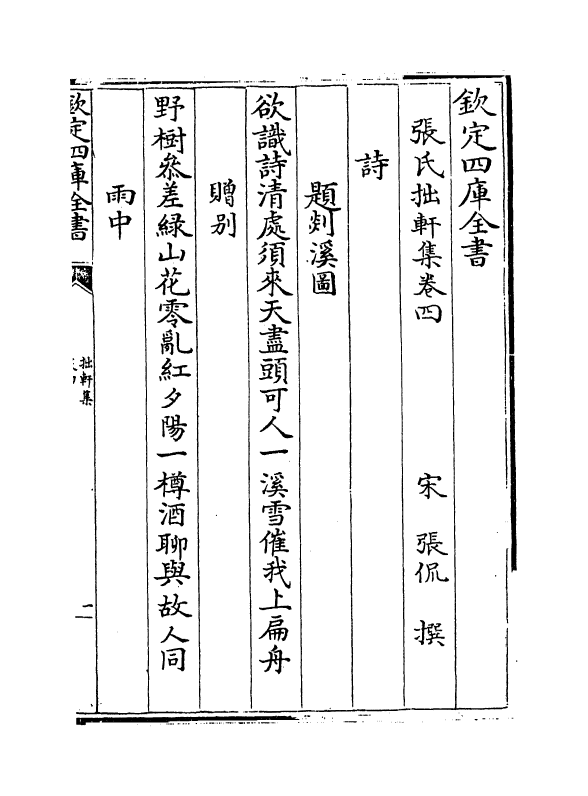 欽定四庫全書
張氏拙軒集卷四
宋　張侃　撰
詩
題剡溪圖
欲識詩清處須來天盡頭可人一溪雪催我上扁舟
贈别
野樹叅差緑山花零亂紅夕陽一樽酒聊與故人同
雨中
欽定四庫全書
拙軒集
二